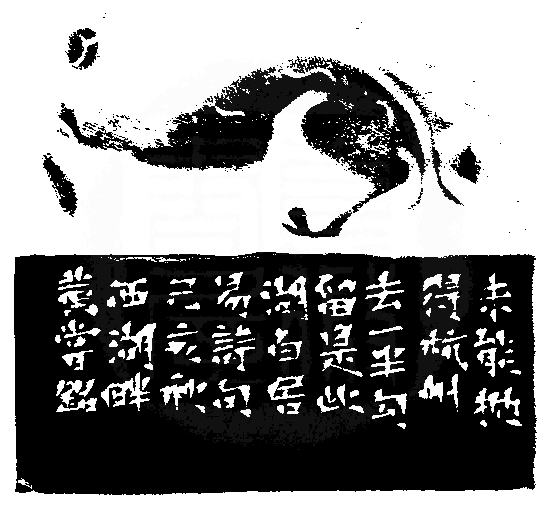 未能拋
得杭州
去一半勾
留是此
湖白居
易詩句
己亥秋
西湖畔
黃嘗銘